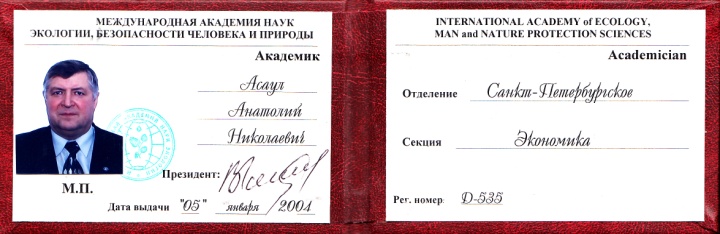 МЕЖДУНАРОДНАЯ АКАДЕМИЯ НАУК
ЭКОЛОГИИ, БЕЗОПАСНОСТИ ЧЕЛОВЕКА И ПРИРОДЫ
Академик
Асаул
Анатолий
Николаевич
Президент:
М.П.
Дата выдачи "05" января 2004
INTERNATIONAL ACADEMY of ECOLOGY,
MAN and NATURE PROTECTION SCIENCES
Academician
Отделение Санкт-Петербургское
Секция Экономика
Рег. номер Д-535